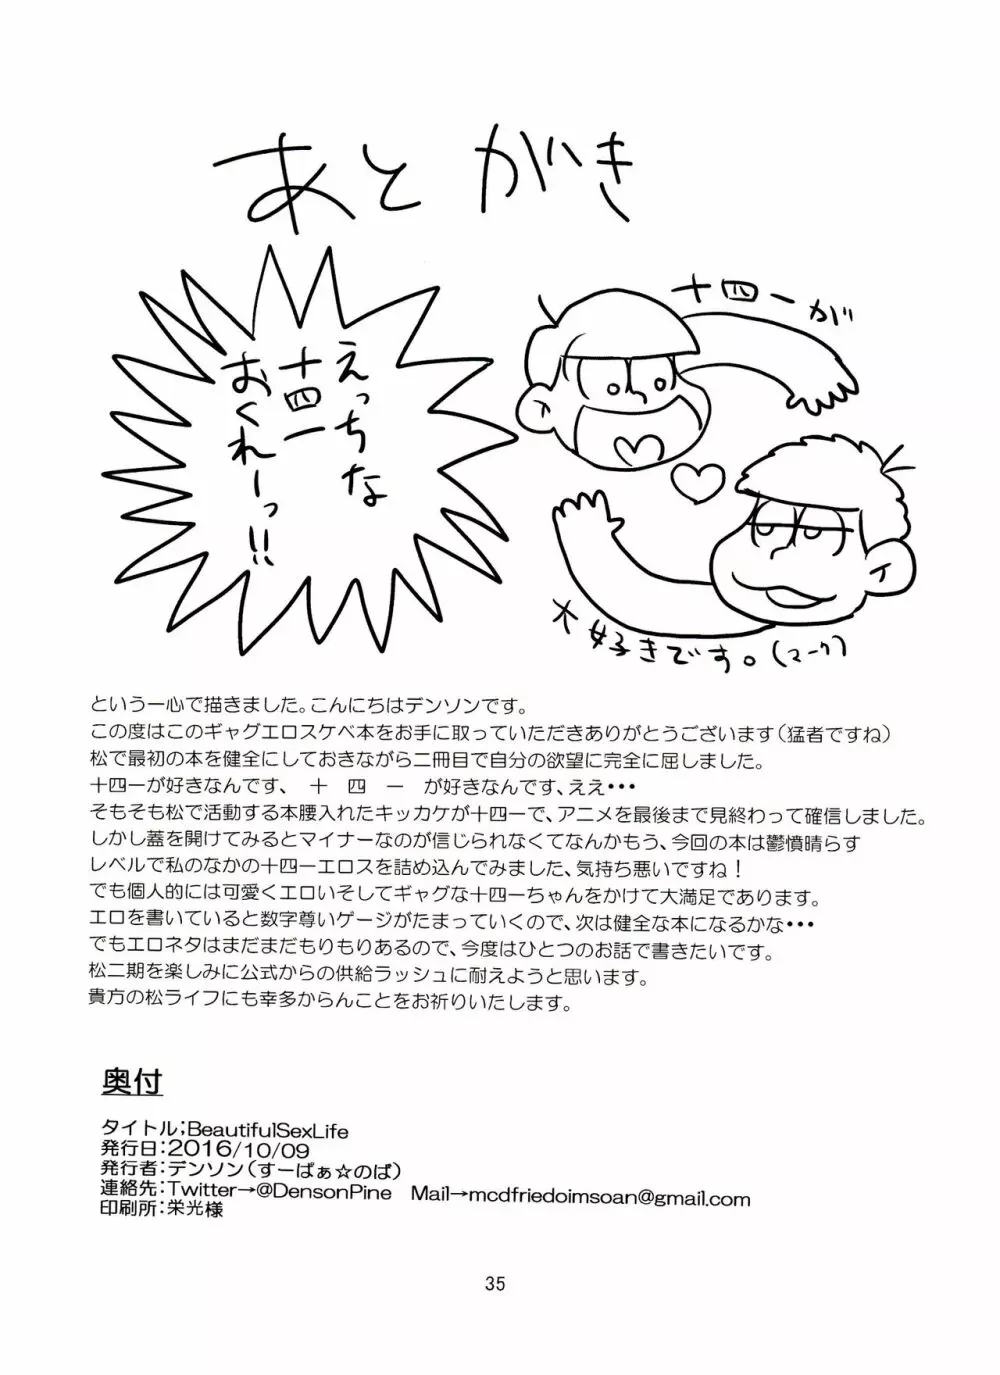 あとがき
えっちな
十四一
おくれーっ!!
十四一が
大好きです。(マーク)
という一心で描きました。こんにちはデンソンです。
この度はこのギャグエロスケベ本をお手に取っていただきありがとうございます(猛者ですね)
松で最初の本を健全にしておきながら二冊目で自分の欲望に完全に屈しました。
十四一が好きなんです、　十　四　一　が好きなんです、ええ・・・
そもそも松で活動する本腰入れたキッカケが十四一で、アニメを最後まで見終わって確信しました。
しかし蓋を開けてみるとマイナーなのが信じられなくてなんかもう、今回の本は鬱憤晴らす
レベルで私のなかの十四一エロスを詰め込んでみました、気持ち悪いですね！
でも個人的には可愛くエロいそしてギャグな十四一ちゃんをかけて大満足であります。
エロを書いていると数字尊いゲージがたまっていくので、次は健全な本になるかな・・・
でもエロネタはまだまだもりもりあるので、今度はひとつのお話で書きたいです。
松二期を楽しみに公式からの供給ラッシュに耐えようと思います。
貴方の松ライフにも幸多からんことをお祈りいたします。
奥付
タイトル;BeautifulSexLife
発行日:2016/10/09
発行者:デンソン(すーぱぁ☆のば)
連絡先:Twitter→@DensonPine　Mail→mcdfriedoimsoan@gmail.com
印刷所:栄光様
35